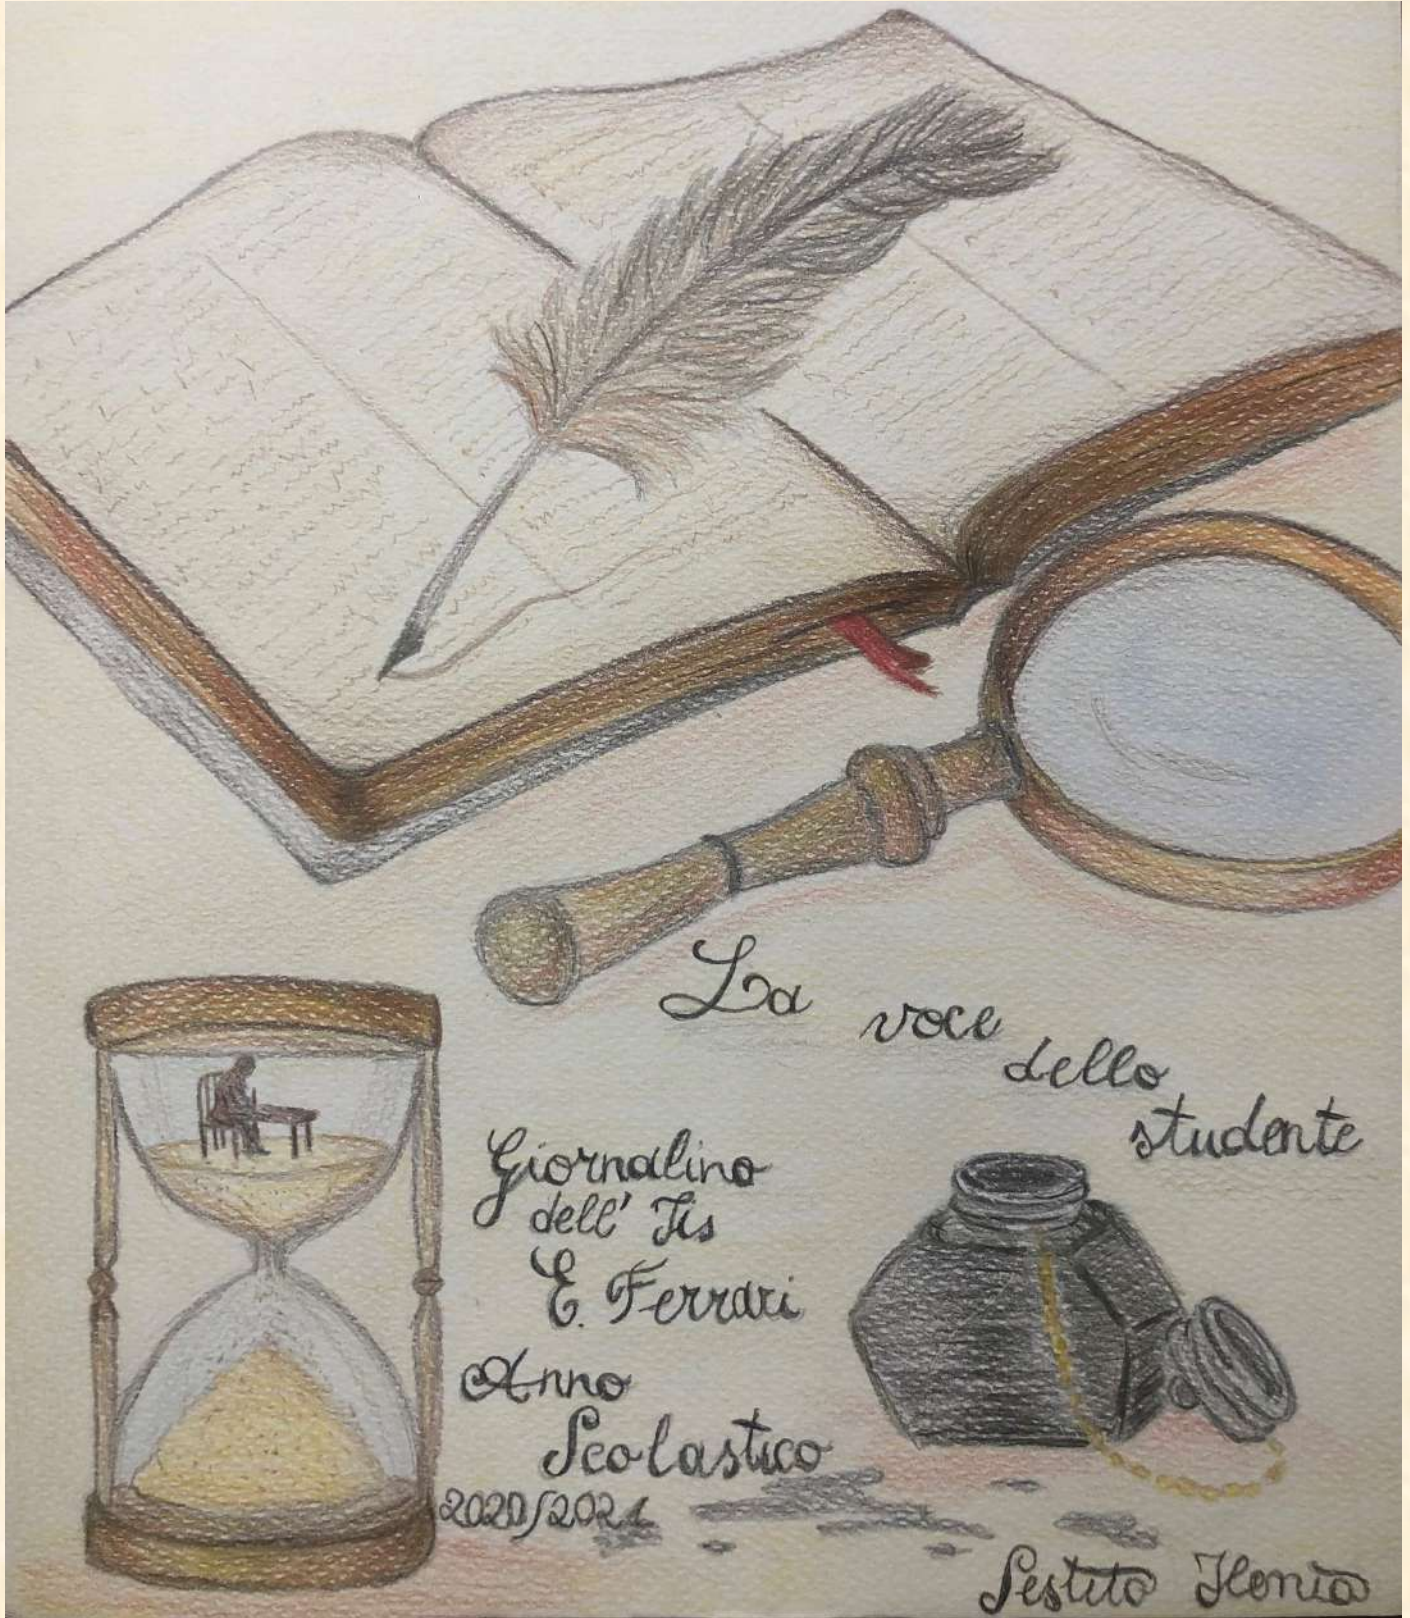 La voce
dello
studente
Giornalino
dell' Iis
E. Ferrari
Anno
Scolastico
2020/2021
Sestito Ilenia